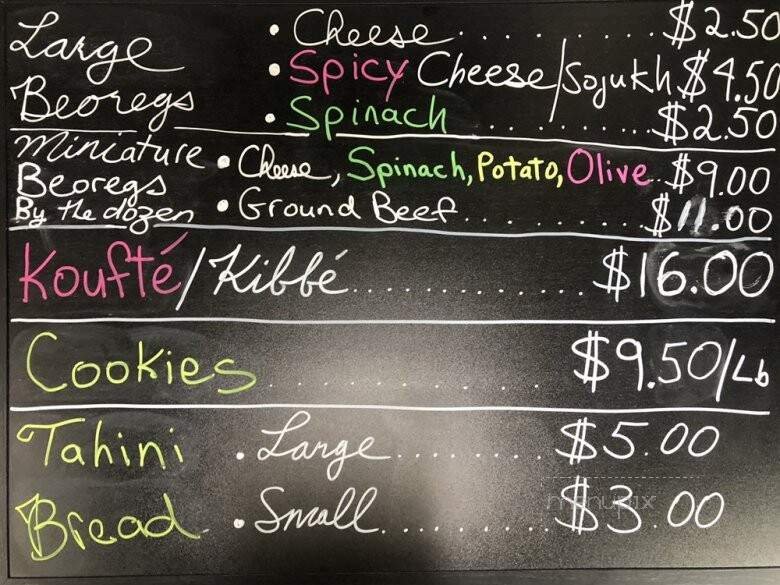 Large • Cheese.......... $2.50
Beoregs • Spicy Cheese/Sojukh $4.50
• Spinach.......... $2.50
Miniature • Cheese, Spinach, Potato, Olive.. $9.00
Beoregs
By the dozen • Ground Beef.......... $11.00
Koufté/Kibbé............... $16.00
Cookies............... $9.50/Lb
Tahini • Large......... $5.00
Bread • Small......... $3.00
menupix